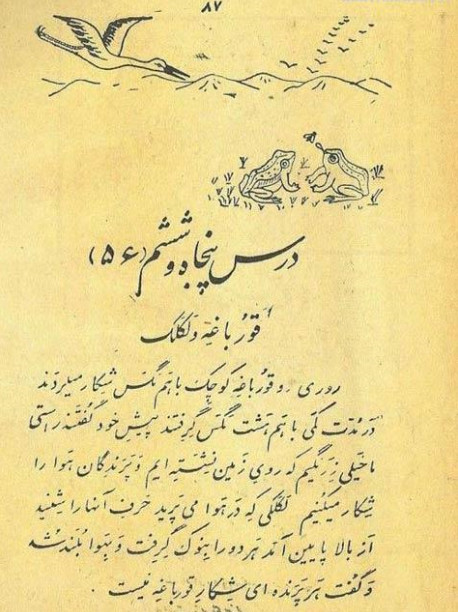 ۸۷
درس پنجاه و ششم (۵۶)
قورباغه و لکلک
روزی دو قورباغهٔ کوچک با هم مگس شکار میکردند
در مدت کمی با هم هشت مگس گرفتند پیش خود گفتند راستی
ما خیلی زرنگیم که روی زمین نشسته ایم و پرندگان هوا را
شکار میکنیم لکلکی که در هوا می پرید حرف آنها را شنید
از بالا پایین آمد هر دو را بنوک گرفت و بهوا بلند شد
و گفت هر پرنده ای شکار قورباغه نیست .